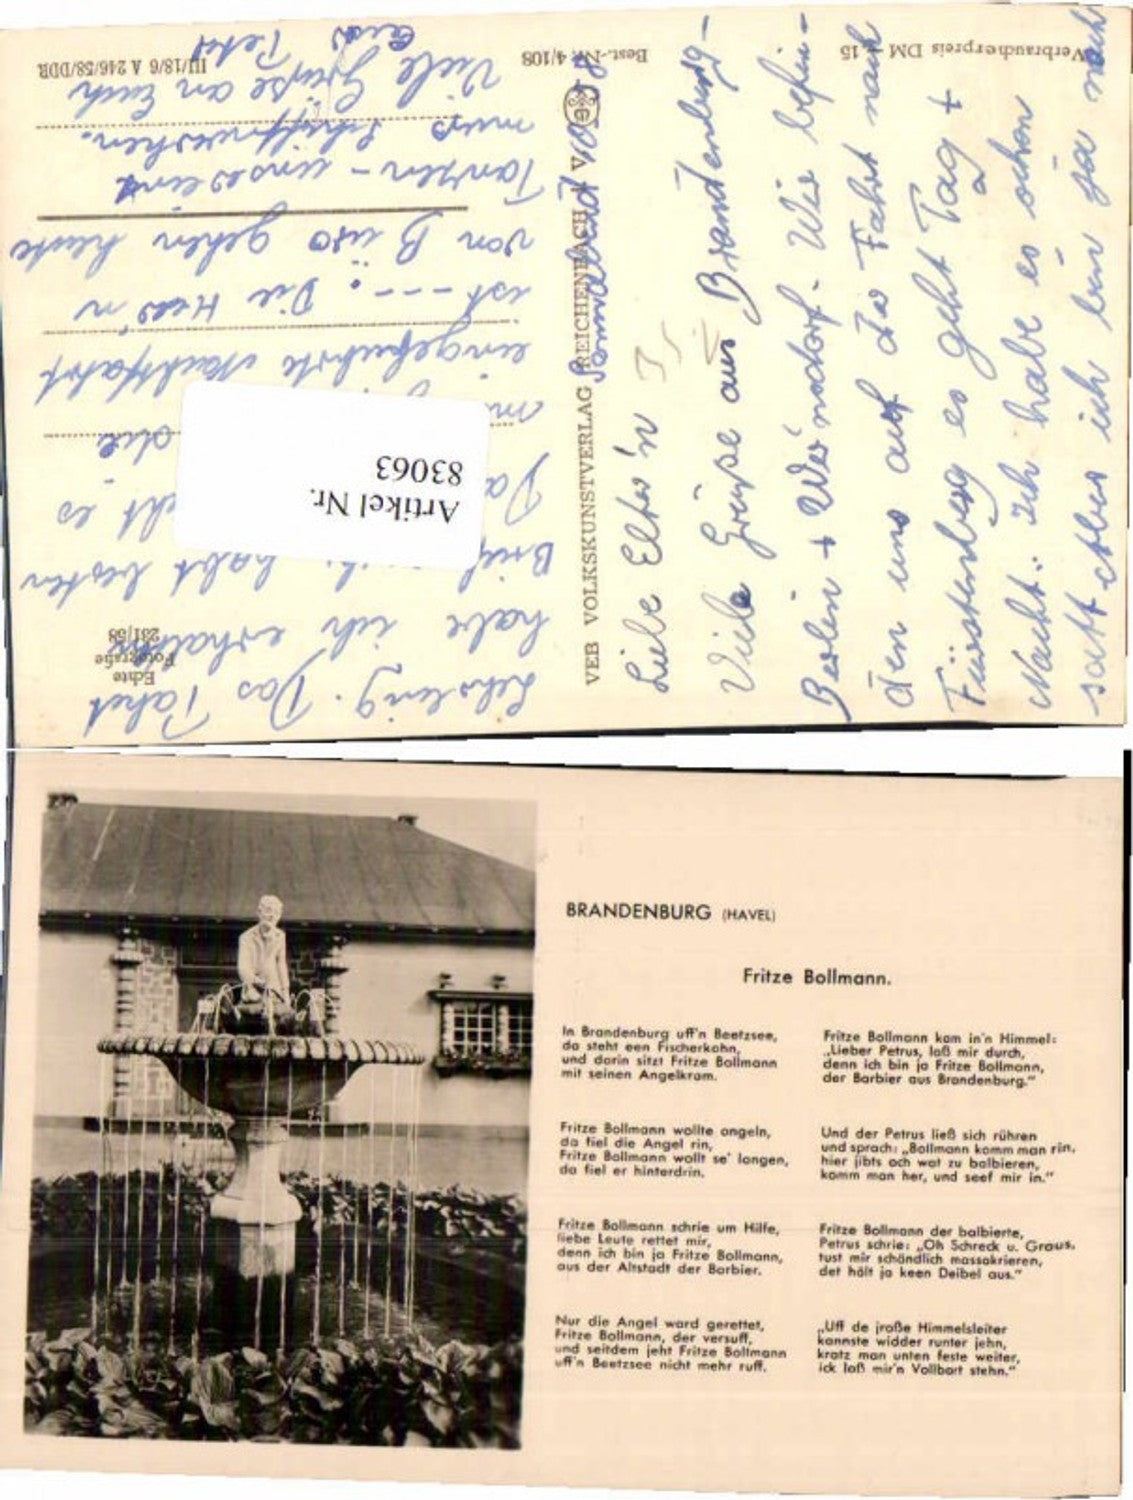 Verbraucherpreis DM 0,15
Best.-Nr. 4/108
III/18/6 A 246/58/DDR
VEB VOLKSKUNSTVERLAG REICHENBACH
Echte
Fotografie
231/58
Artikel Nr.
83063
Liebe Elter'n
Viele Grüße aus Brandenburg-
Berlin + Wernsdorf. Wir befin-
den uns auf der Fahrt nach
Fürstenberg es geht Tag +
Nacht. Ich habe es schon
satt aber ich bin ja noch
Lehrling. Das Paket
habe ich erhalten
habt besten
es
die
eingeführte Nachtfahrt
ist ---. Die Herr'n
von Büro gehen heute
Tanzen - unsereins
muss
Viele Grüße an Euch
Peter
BRANDENBURG (HAVEL)
Fritze Bollmann.
In Brandenburg uff'n Beetzsee,
da steht een Fischerkahn,
und darin sitzt Fritze Bollmann
mit seinen Angelkram.
Fritze Bollmann wollte angeln,
da fiel die Angel rin,
Fritze Bollmann wollt se' langen,
da fiel er hinterdrin.
Fritze Bollmann schrie um Hilfe,
liebe Leute rettet mir,
denn ich bin ja Fritze Bollmann,
aus der Altstadt der Barbier.
Nur die Angel ward gerettet,
Fritze Bollmann, der versuff,
und seitdem jeht Fritze Bollmann
uff'n Beetzsee nicht mehr ruff.
Fritze Bollmann kam in'n Himmel:
„Lieber Petrus, laß mir durch,
denn ich bin ja Fritze Bollmann,
der Barbier aus Brandenburg."
Und der Petrus ließ sich rühren
und sprach: „Bollmann komm man rin,
hier jibts och wat zu balbieren,
komm man her, und seef mir in."
Fritze Bollmann der balbierte,
Petrus schrie: „Oh Schreck u. Graus,
tust mir schändlich massakrieren,
det hält ja keen Deibel aus."
„Uff de jroße Himmelsleiter
kannste widder runter jehn,
kratz man unten feste weiter,
ick laß mir'n Vollbart stehn."